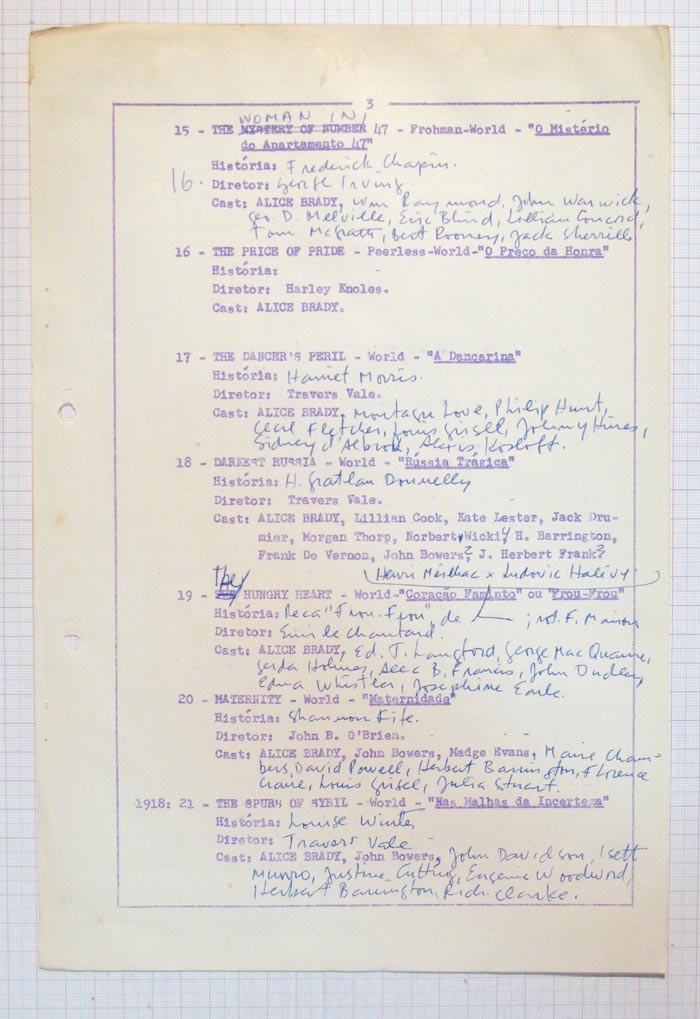 3
WOMAN IN
15 - THE MYSTERY OF NUMBER 47 - Frohman-World - "O Mistério
do Apartamento 47"
História: Frederick Chapin.
16. Diretor: George Irving
Cast: ALICE BRADY, Wm Raymond, John Warwick,
Geo. D. Melville, Eric Blind, Lillian Concord,
Tom McGrath, Bert Rooney, Jack Sherrill
16 - THE PRICE OF PRIDE - Peerless-World-"O Preço da Honra"
História:
Diretor: Harley Knoles.
Cast: ALICE BRADY.
17 - THE DANCER'S PERIL - World - "A Dançarina"
História: Harriet Morris.
Diretor: Travers Vale.
Cast: ALICE BRADY, Montagu Love, Philip Hunt,
Cecil Fletcher, Louis Grisel, Johnny Hines,
Sidney d'Albrook, Alexis Kosloff.
18 - DARKEST RUSSIA - World - "Rússia Trágica"
História: H. Grattan Donnelly
Diretor: Travers Vale.
Cast: ALICE BRADY, Lillian Cook, Kate Lester, Jack Dru-
mier, Morgan Thorp, Norbert Wicki, H. Barrington,
Frank De Vernon, John Bowers? J. Herbert Frank?
They Henri Meilhac x Ludovic Halévy
19 - HUNGRY HEART - World-"Coração Faminto" ou "Frou-Frou"
História: Peça "Frou-Frou", de ; rot. F. Marion
Diretor: Emile Chautard.
Cast: ALICE BRADY, Ed. T. Langford, George Mac Quarrie,
Gerda Holmes, Alec B. Francis, John Dudley,
Edna Whistler, Josephine Earle.
20 - MATERNITY - World - "Maternidade"
História: Shannon Fife.
Diretor: John B. O'Brien.
Cast: ALICE BRADY, John Bowers, Madge Evans, Marie Cham-
bers, David Powell, Herbert Barrington, Florence
Crane, Louis Grisel, Julia Stuart.
1918: 21 - THE SPURS OF SYBIL - World - "Nas Malhas da Incerteza"
História: Louise Winter
Diretor: Travers Vale
Cast: ALICE BRADY, John Bowers, John Davidson, Isett
Munro, Justine Cutting, Eugene Woodword,
Herbert Barrington, Rich. Clarke.